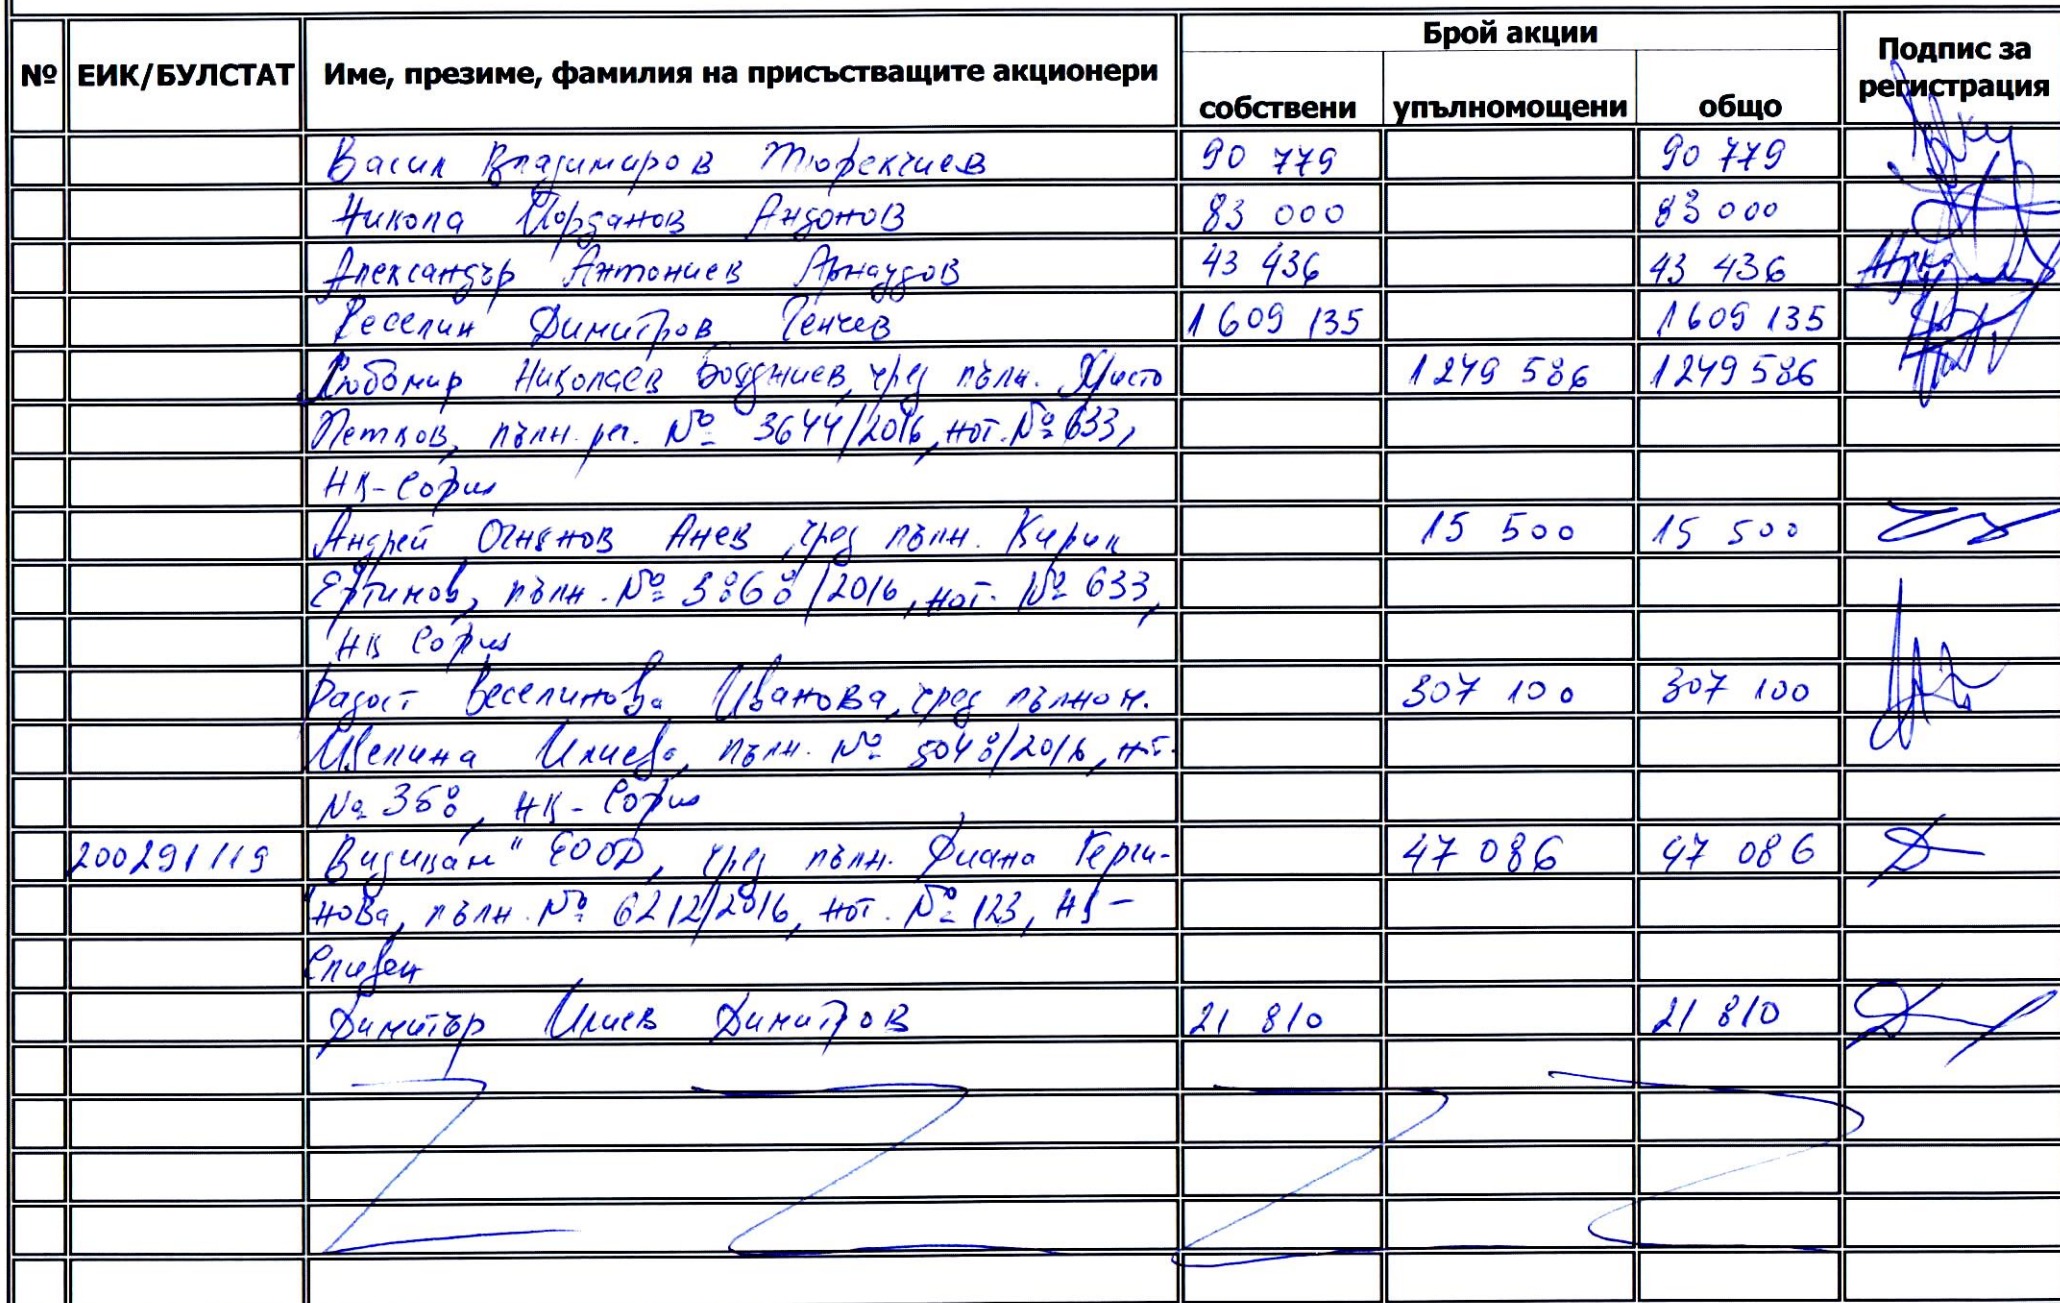 Брой акции
№ ЕИК/БУЛСТАТ Име, презиме, фамилия на присъстващите акционери собствени упълномощени общо Подпис за регистрация
Васил Владимиров Тюфекчиев 90 779 90 779
Никола Йорданов Андонов 83 000 83 000
Александър Антониев Арнаудов 43 436 43 436
Веселин Димитров Генчев 1 609 135 1 609 135
Любомир Николаев Бояджиев, чрез пълн. Христо 1 249 586 1 249 586
Петков, пълн. рег. № 3644/2016, нот. № 633,
НК-София
Андрей Огнянов Анев, чрез пълн. Кирил 15 500 15 500
пълн. № 3868/2016, нот. № 633,
НК София
Радост Веселинова Иванова, чрез пълном. 307 100 307 100
Ивелина Илиева, пълн. № 5048/2016, нот.
№ 358, НК-София
200291119 ЕООД, чрез пълн. Диана Герги- 47 086 47 086
нова, пълн. № 6212/2016, нот. № 123, НК-
Сливен
Димитър Илиев Димитров 21 810 21 810